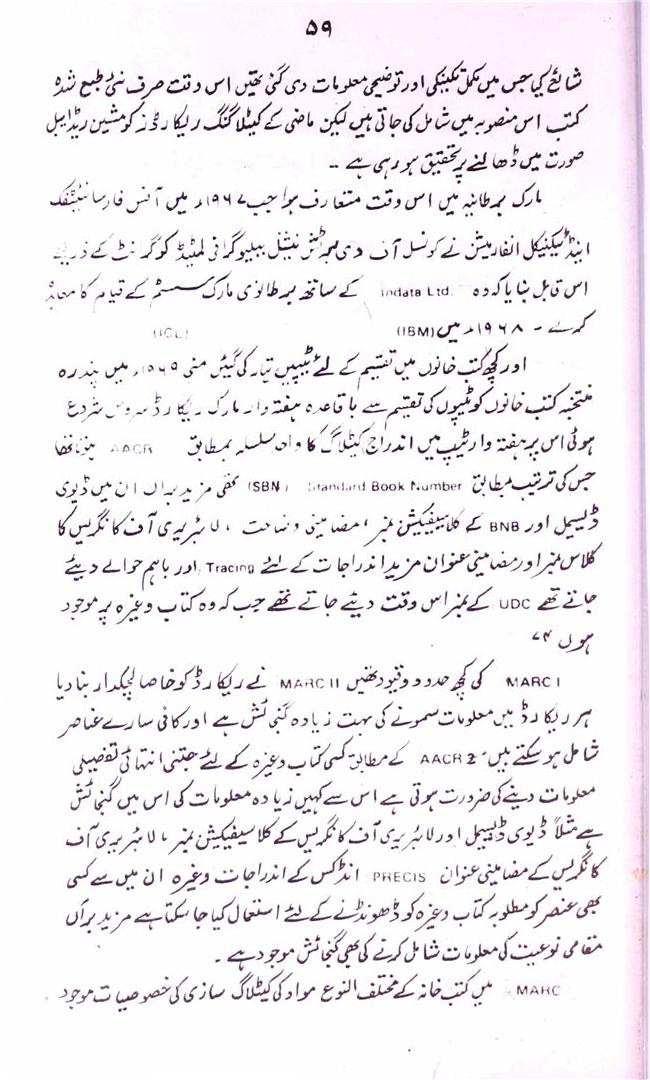 ۵۹
شائع کیا جس میں مکمل تکنیکی اور توضیحی معلومات دی گئی تھیں اس وقت صرف نئی طبع شدہ
کتب اس منصوبہ میں شامل کی جاتی ہیں لیکن ماضی کے کیٹلاگنگ ریکارڈز کو مشین ریڈ ایبل
صورت میں ڈھالنے پر تحقیق ہو رہی ہے ۔
مارک برطانیہ میں اس وقت متعارف ہوا جب ۱۹۶۷ء میں آفس فار سائنٹفک
اینڈ ٹیکنیکل انفارمیشن نے کونسل آف دی برٹش نیشنل ببلیوگرافی لمیٹڈ کو گرانٹ کے ذریعے
اس قابل بنایا کہ وہ Indata Ltd. کے ساتھ برطانوی مارک سسٹم کے قیام کا معاہدہ
کرے ۔ ۱۹۶۸ء میں (IBM) (ICL)
اور کچھ کتب خانوں میں تقسیم کے لئے ٹیپیں تیار کی گئیں مئی میں پندرہ
منتخبہ کتب خانوں کو ٹیپوں کی تقسیم سے باقاعدہ ہفتہ وار مارک ریکارڈ سروس شروع
ہوئی اس پر ہفتہ وار ٹیپ میں اندراج کیٹلاگ کا واحد سلسلہ بمطابق AACR ہوتا تھا
جس کی ترتیب مطابق Standard Book Number (SBN) تھی مزید براں ان میں ڈیوی
ڈیسیمل اور BNB کے کلاسیفیکیشن نمبر ، مضامینی وضاحت ، لائبریری آف کانگریس کا
کلاس نمبر اور مضامینی عنوان مزید اندراجات کے لئے Tracing اور باہم حوالے دیئے
جاتے تھے UDC کے نمبر اس وقت دیئے جاتے تھے جب کہ وہ کتاب وغیرہ پر موجود
ہوں ۷۴
MARC I کی کچھ حدود و قیود تھیں MARC II نے ریکارڈ کو خاصا لچکدار بنا دیا
ہر ریکارڈ میں معلومات سمونے کی بہت زیادہ گنجائش ہے اور کافی سارے عناصر
شامل ہو سکتے ہیں۔ AACR 2 کے مطابق کسی کتاب وغیرہ کے لئے جتنی انتہائی تفصیلی
معلومات دینے کی ضرورت ہوتی ہے اس سے کہیں زیادہ معلومات کی اس میں گنجائش
ہے مثلاً ڈیوی ڈیسیمل اور لائبریری آف کانگریس کے کلاسیفیکیشن نمبر ، لائبریری آف
کانگریس کے مضامینی عنوان PRECIS انڈکس کے اندراجات وغیرہ ان میں سے کسی
بھی عنصر کو مطلوبہ کتاب وغیرہ کو ڈھونڈنے کے لئے استعمال کیا جا سکتا ہے مزید برآں
مقامی نوعیت کی معلومات شامل کرنے کی بھی گنجائش موجود ہے ۔
MARC میں کتب خانہ کے مختلف النوع مواد کی کیٹلاگ سازی کی خصوصیات موجود